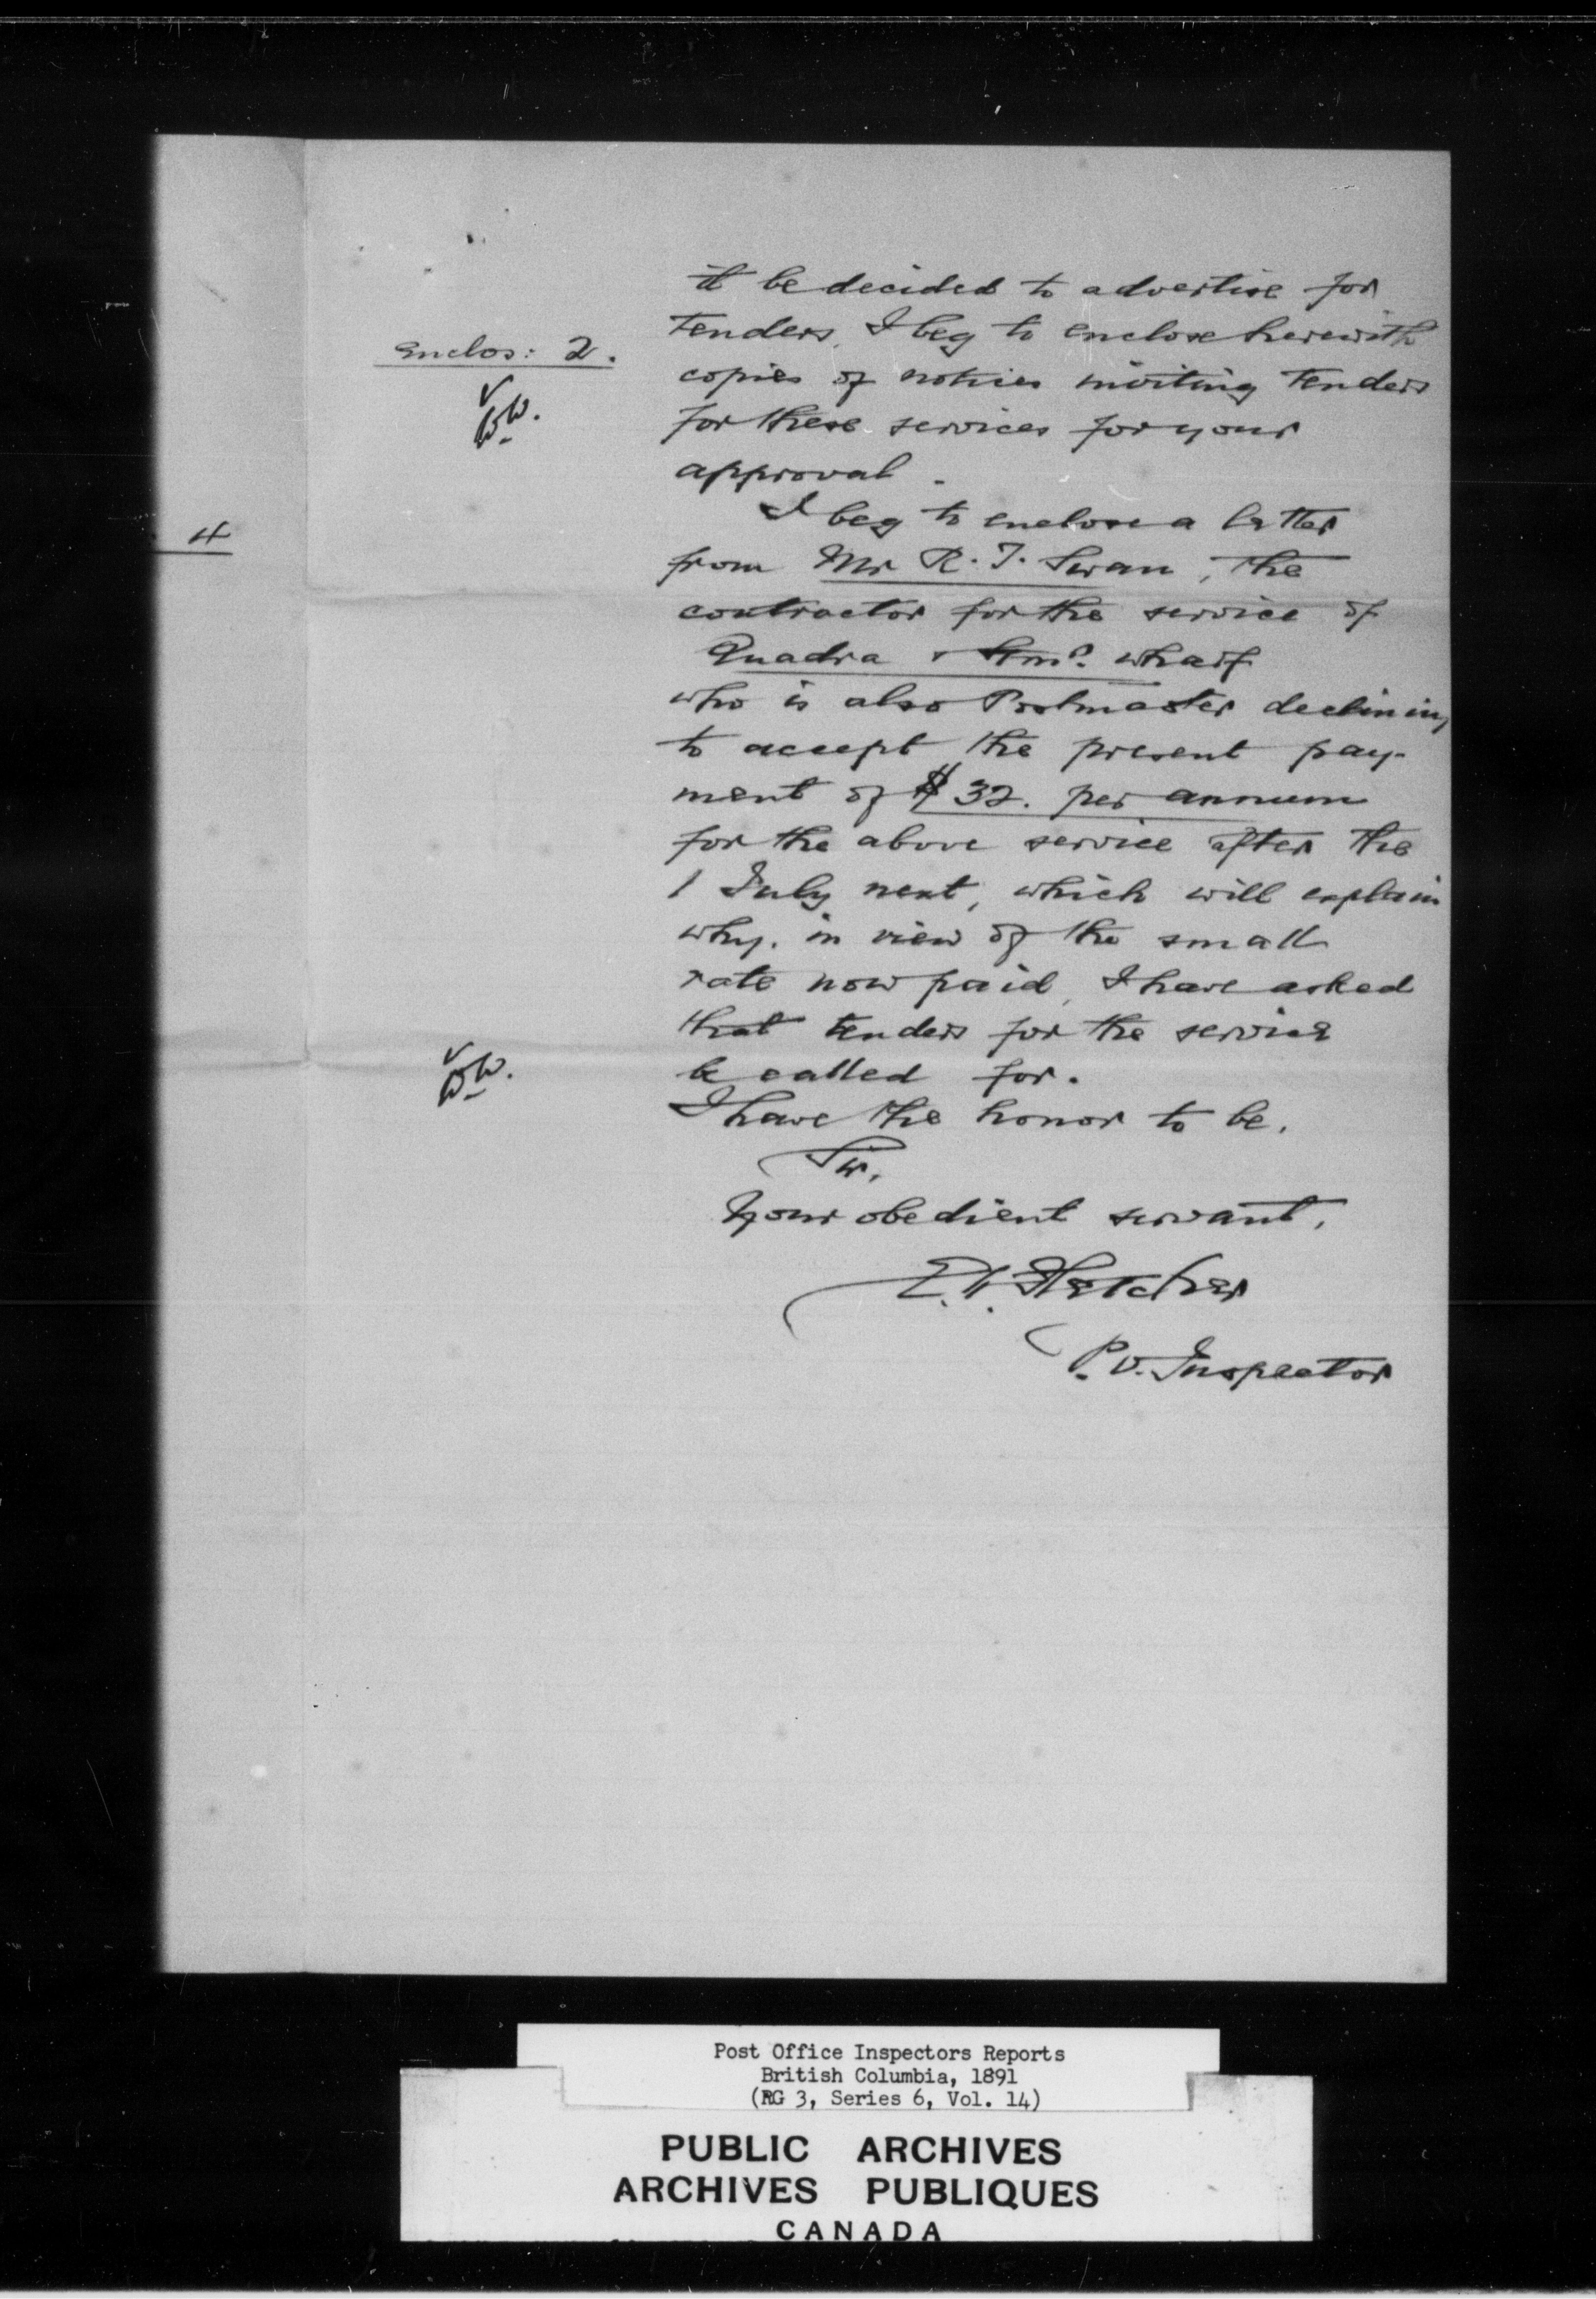 it be decided to advertise for
Tenders, I beg to enclose herewith
Enclos: 2.
copies of notices inviting Tenders
for these services for your
approval.
I beg to enclose a letter
4
from Mr R. T. Swan, the
contractor for the service of
Quadra & Stmr. wharf
who is also Postmaster declining
to accept the present pay-
ment of $32. per annum
for the above service after the
1 July next, which will explain
why, in view of the small
rate now paid, I have asked
that tenders for the service
be called for.
I have the honor to be,
Sir,
Your obedient servant,
E. H. Fletcher
P.O. Inspector
Post Office Inspectors Reports
British Columbia, 1891
(RG 3, Series 6, Vol. 14)
PUBLIC ARCHIVES
ARCHIVES PUBLIQUES
CANADA